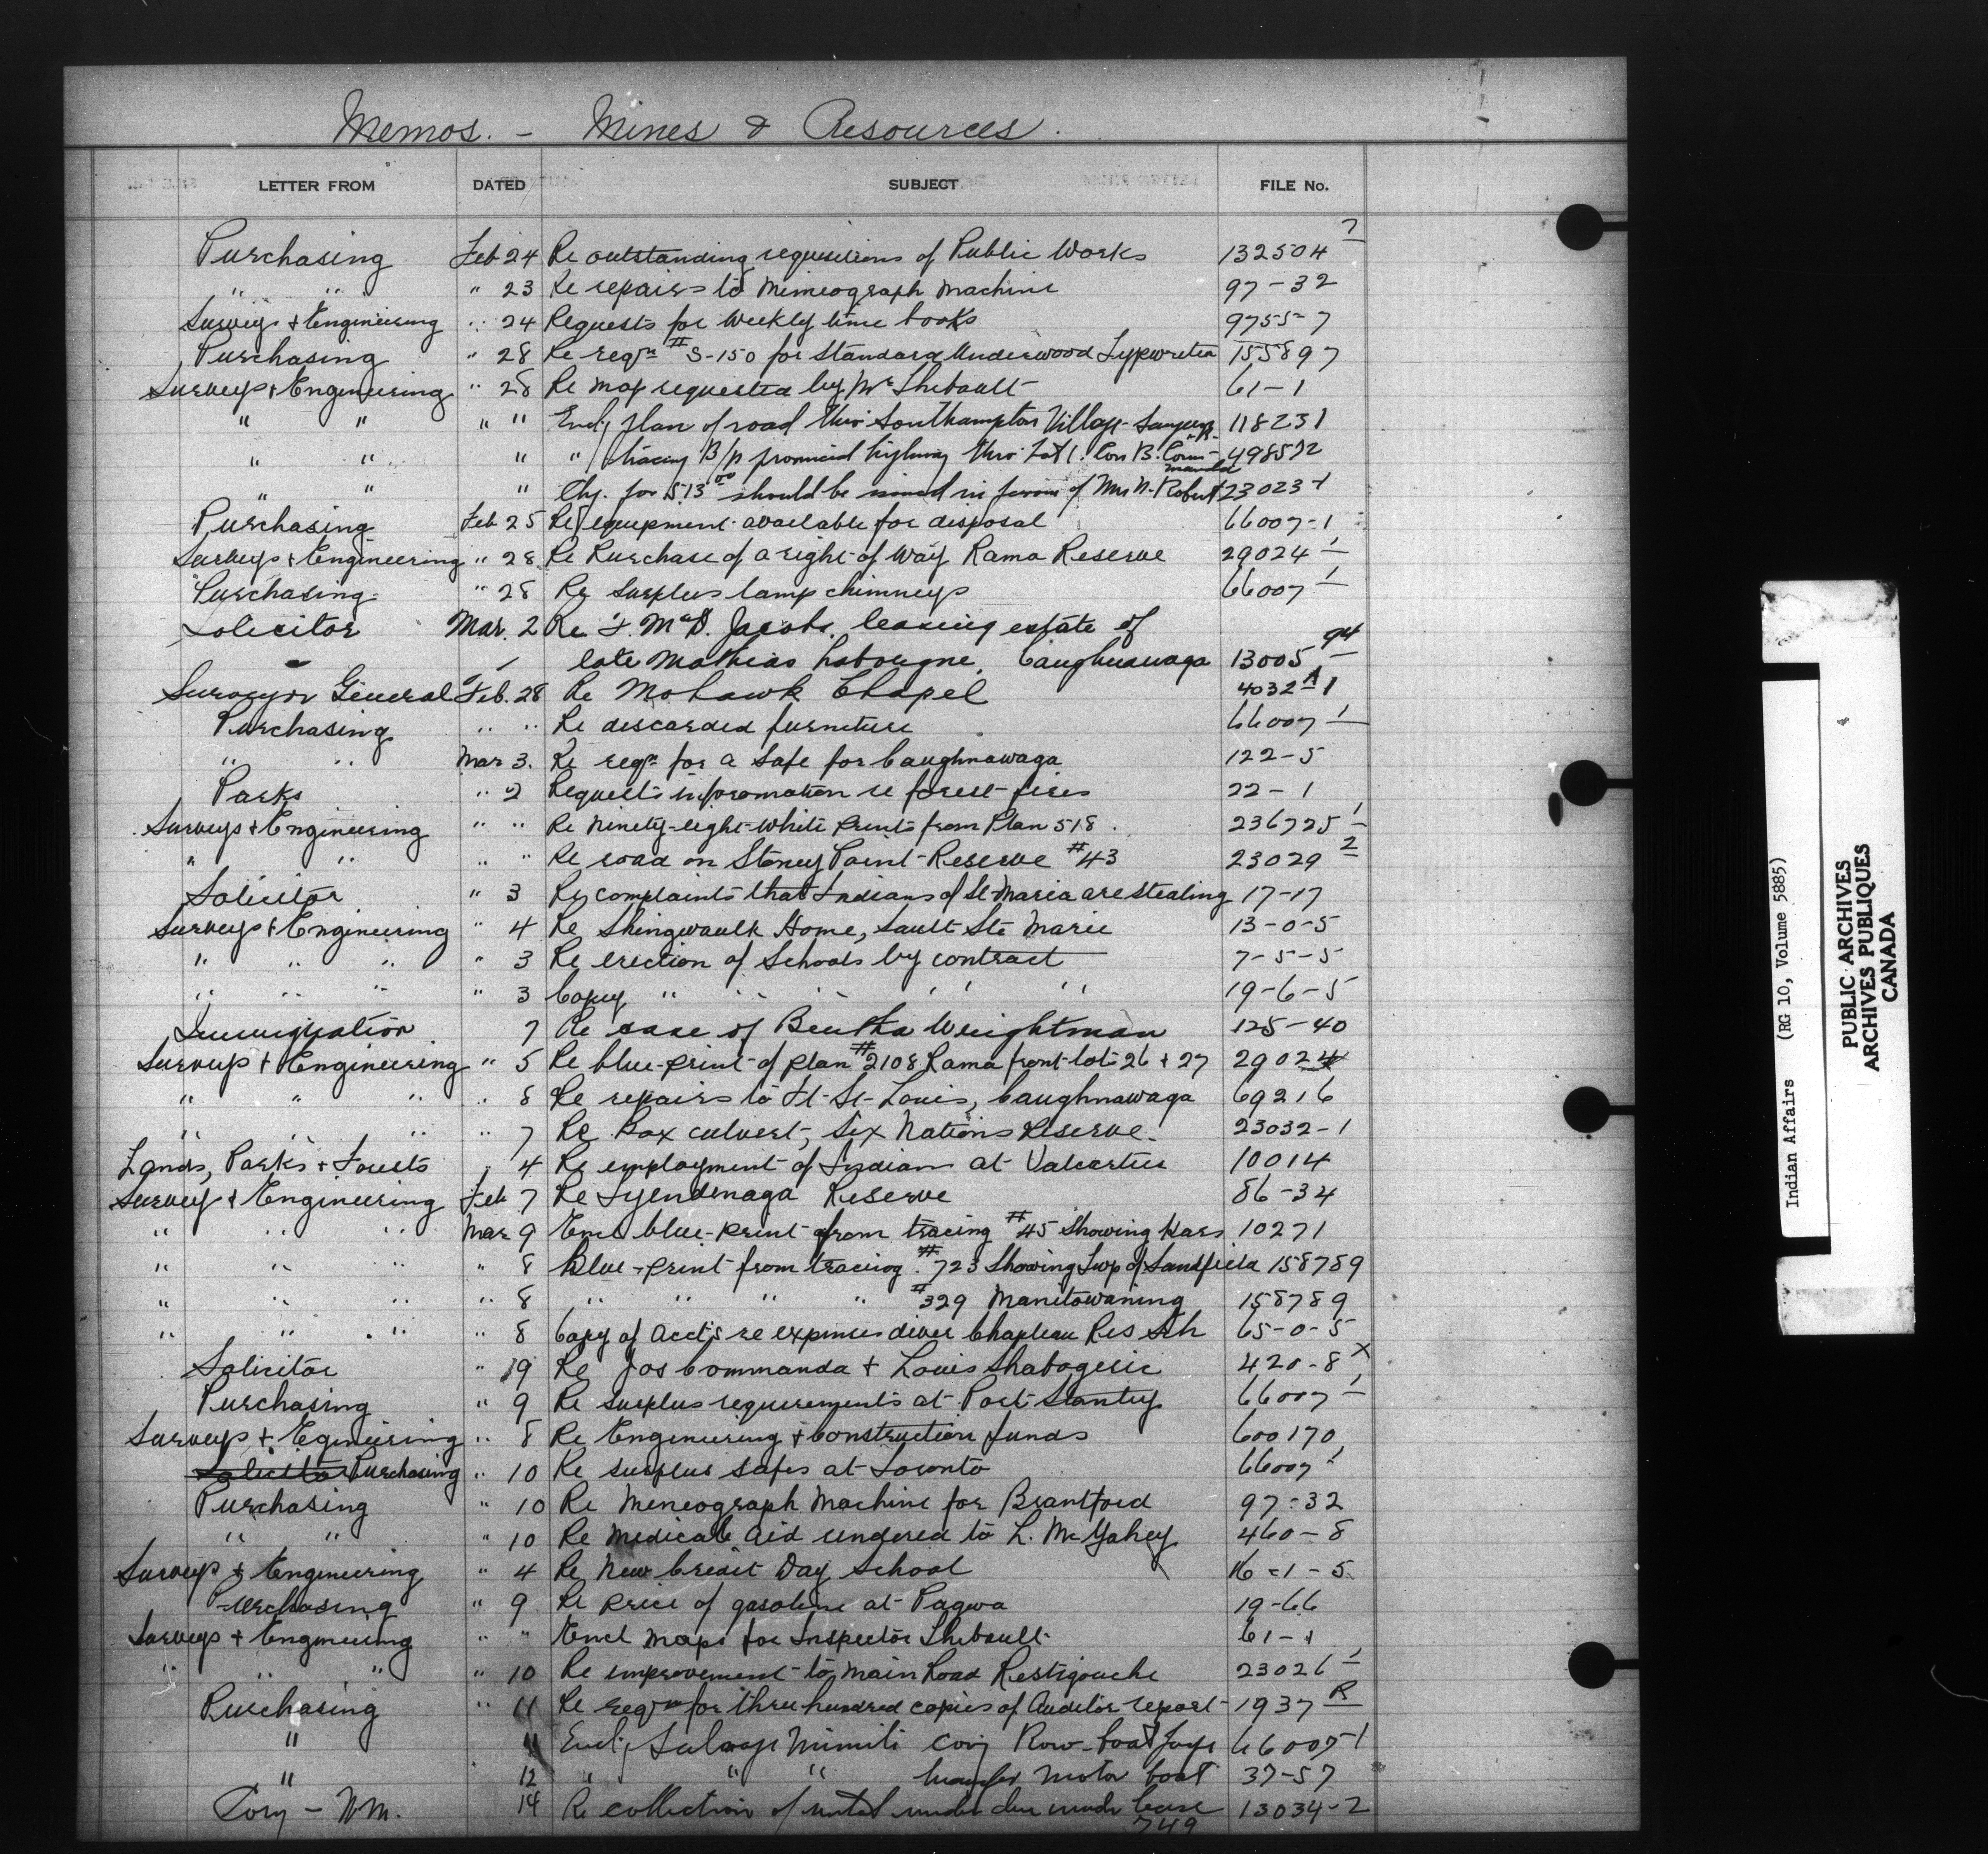 Memos. - Mines & Resources.
LETTER FROM DATED SUBJECT FILE No.
Purchasing Feb 24 Re outstanding requisitions of Public Works 132504 7
" " " 23 Re repairs to Mimeograph Machine 97-32
Surveys & Engineering " 24 Requests for Weekly time books 9755-7
Purchasing " 28 Re reqn #S-150 for Standard Underwood Typewriter 155897
Surveys & Engineering " 28 Re map requested by Mr Thibault 61-1
" " " " Encl plan of road thro Southampton Village 118231
" " " " tracing B/p provincial highway thro Lot 1. Con B. 49857 2
" " " Chq. for 513 00 should be issued in favour of Mrs N. Robert 23023-1
Purchasing Feb 25 Re equipment available for disposal 66007-1
Surveys & Engineering " 28 Re Purchase of a right of way Rama Reserve 29024 1
Purchasing " 28 Re surplus lamp chimneys 66007 1
Solicitor Mar. 2 Re F. McD. Jacobs, leasing estate of
late Mathias Caughnawaga 13005 94
Surveyor General Feb. 28 Re Mohawk Chapel 4032 A 1
Purchasing " " Re discarded furniture 66007 1
" " Mar 3. Re reqn for a Safe for Caughnawaga 122-5
Parks " 2 Requests information re forest fires 22-1
Surveys & Engineering " " Re ninety-eight white prints from Plan 518. 236725 1
" " " " Re road on Stoney Point Reserve #43 23029 2
Solicitor " 3 Re complaints that Indians of St Maria are stealing 17-17
Surveys & Engineering " 4 Re Shingwaulk Home, Sault Ste Marie 13-0-5
" " " " 3 Re erection of Schools by contract 7-5-5
" " " " 3 Copy " " " " " 19-6-5
Immigration 7 Re case of Bertha Weightman 125-40
Surveys & Engineering " 5 Re blue-print of plan #2108 Rama front lots 26 & 27 29024
" " " " 8 Re repairs to Ft St Louis, Caughnawaga 69216
" " " " 7 Re Box culvert, Six Nations Reserve. 23032-1
Lands, Parks & Forests " 4 Re employment of Indians at Valcartier 10014
Survey & Engineering Feb 7 Re Tyendenaga Reserve 86-34
" " " Mar 9 Encl blue-print from tracing #45 Showing 10271
" " " " 8 Blue-print from tracing #723 Showing Twp of Sandfield 158789
" " " " 8 " " " " #329 Manitowaning 158789
" " " " 8 Copy of Acct's re expenses diver Chapleau Res Sch 65-0-5
Solicitor " 9 Re Jos Commanda & Louis Shabogesic 420-8 X
Purchasing " 9 Re surplus requirements at Port Stanley 66007 1
Surveys & Egineering " 8 Re Engineering & Construction funds 600170
Solicitor Purchasing " 10 Re surplus safes at Toronto 66007 1
Purchasing " 10 Re Mimeograph Machine for Brantford 97-32
" " " 10 Re Medical Aid rendered to L. McGahey 460-8
Surveys & Engineering " 4 Re New Credit Day School 16-1-5
Purchasing " 9 Re price of gasoline at Pagwa 19-66
Surveys & Engineering " " Encl maps for Inspector Thibault 61-1
" " " " 10 Re improvement to Main Road Restigouche 23026 1
Purchasing " 11 Re reqn for three hundred copies of Auditor report 1937 R
" 11 Encl Salvage Row-boat 66007-1
" 12 " " " transfer motor boat 37-57
Cory - W.M. 14 Re collection of rental under lease 13034-2
749
Indian Affairs (RG 10, Volume 5885)
PUBLIC ARCHIVES
ARCHIVES PUBLIQUES
CANADA